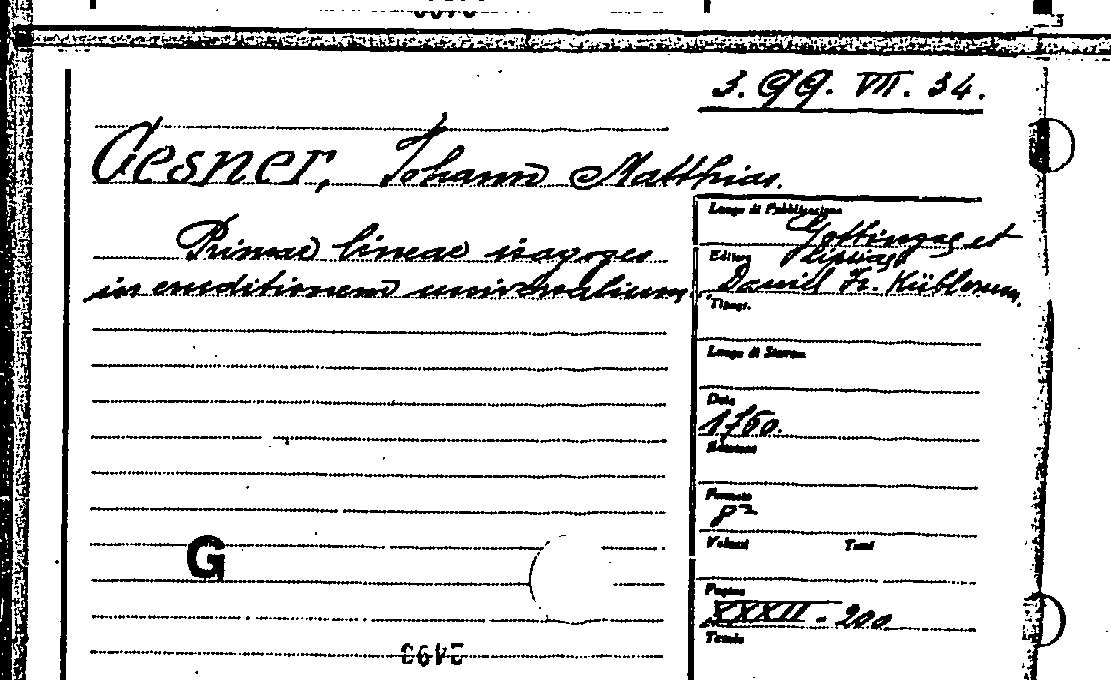 3. QQ. VII. 34.
Gesner, Johann Matthias.
Primae lineae isagoges
in eruditionem universalium.
Luogo di Pubblicazione
Gottingae et
Lipsiae
Editore
Daniel Fr. Küblerum,
Tipogr.
Luogo di Stampa
Data
1760.
Edizione
Formato
8º
Volumi Tomi
Pagine
XXXII - 200
Tavole
G